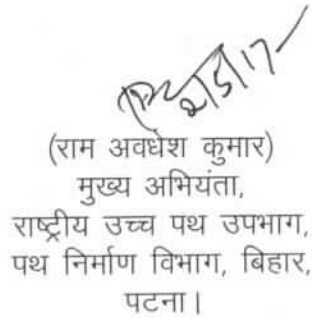 (राम अवधेश कुमार)
मुख्य अभियंता,
राष्ट्रीय उच्च पथ उपभाग,
पथ निर्माण विभाग, बिहार,
पटना।